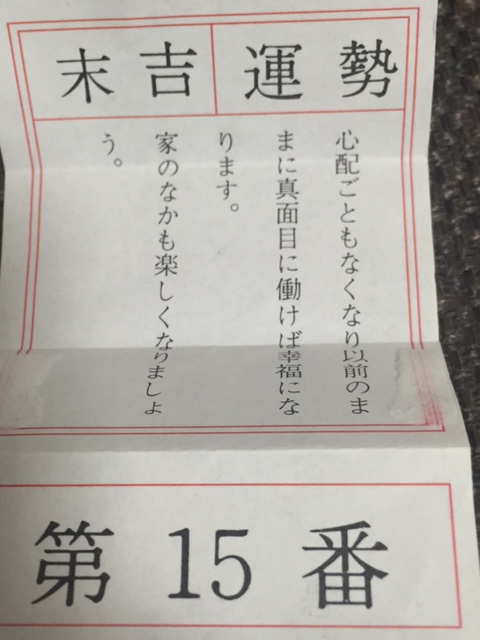 運勢
末吉
心配ごともなくなり以前のま
まに真面目に働けば幸福にな
ります。
家のなかも楽しくなりましょ
う。
第15番